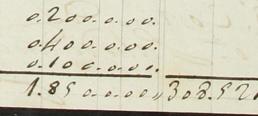 0.200.00.00.
0.400.00.00.
0.100.00.00.
1.850.00.00,, 308.521